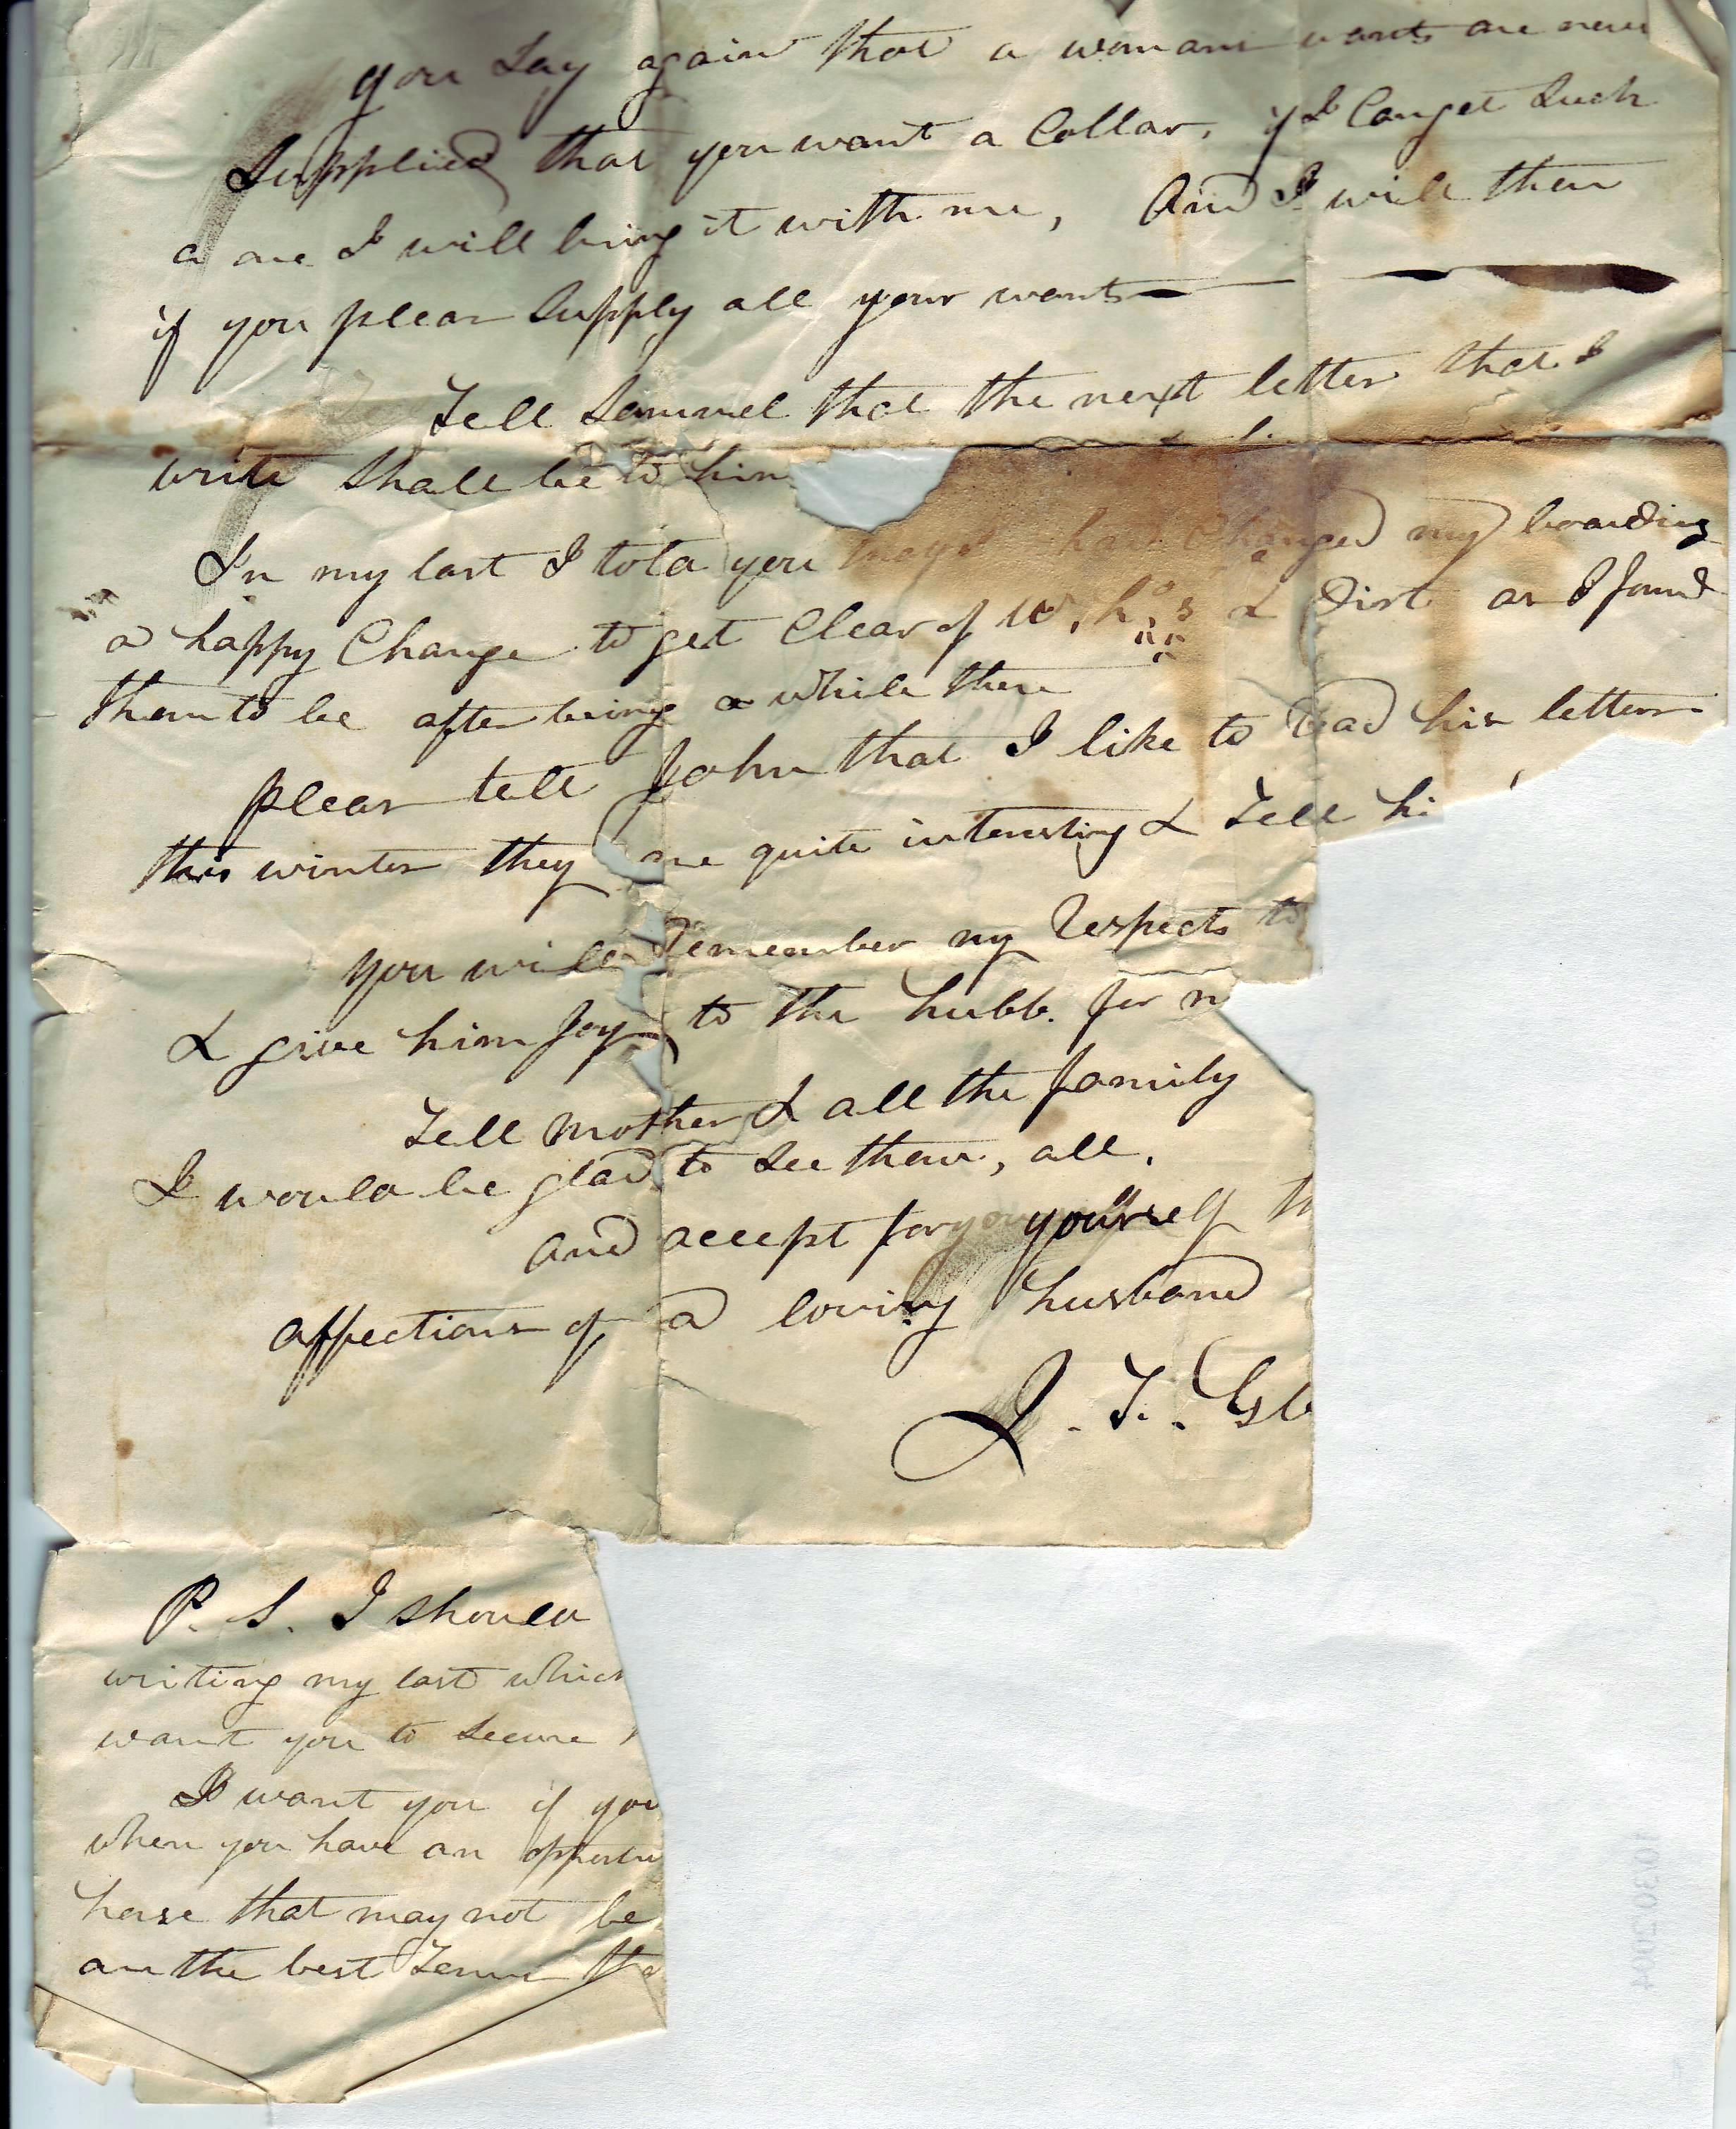 you Say again that a womans wants are never
Supplied that you want a Collar, if I Can get Such
a one I will bring it with me, And I will then
if you pleas Supply all your wants
Tell Samuel that the next letter that I
write Shall be to him
In my last I told you that I had Changed my boarding
a happy Change to get Clear of W. h.o.s & Dirt as I found
them to be after being a while there
pleas tell John that I like to read his letters
this winter they are quite interesting & Tell hi
you will Remember my Respects to
& give him Joy to the hubb. for
Tell Mother & all the family
I would be glad to See them, all.
and accept for yourself th
affections of a loving husband
J. T. Gsb
P. S. I should
writing my last which
want you to Secure
I want you if you
when you have an opportu
horse that may not be
on the best Terms tha